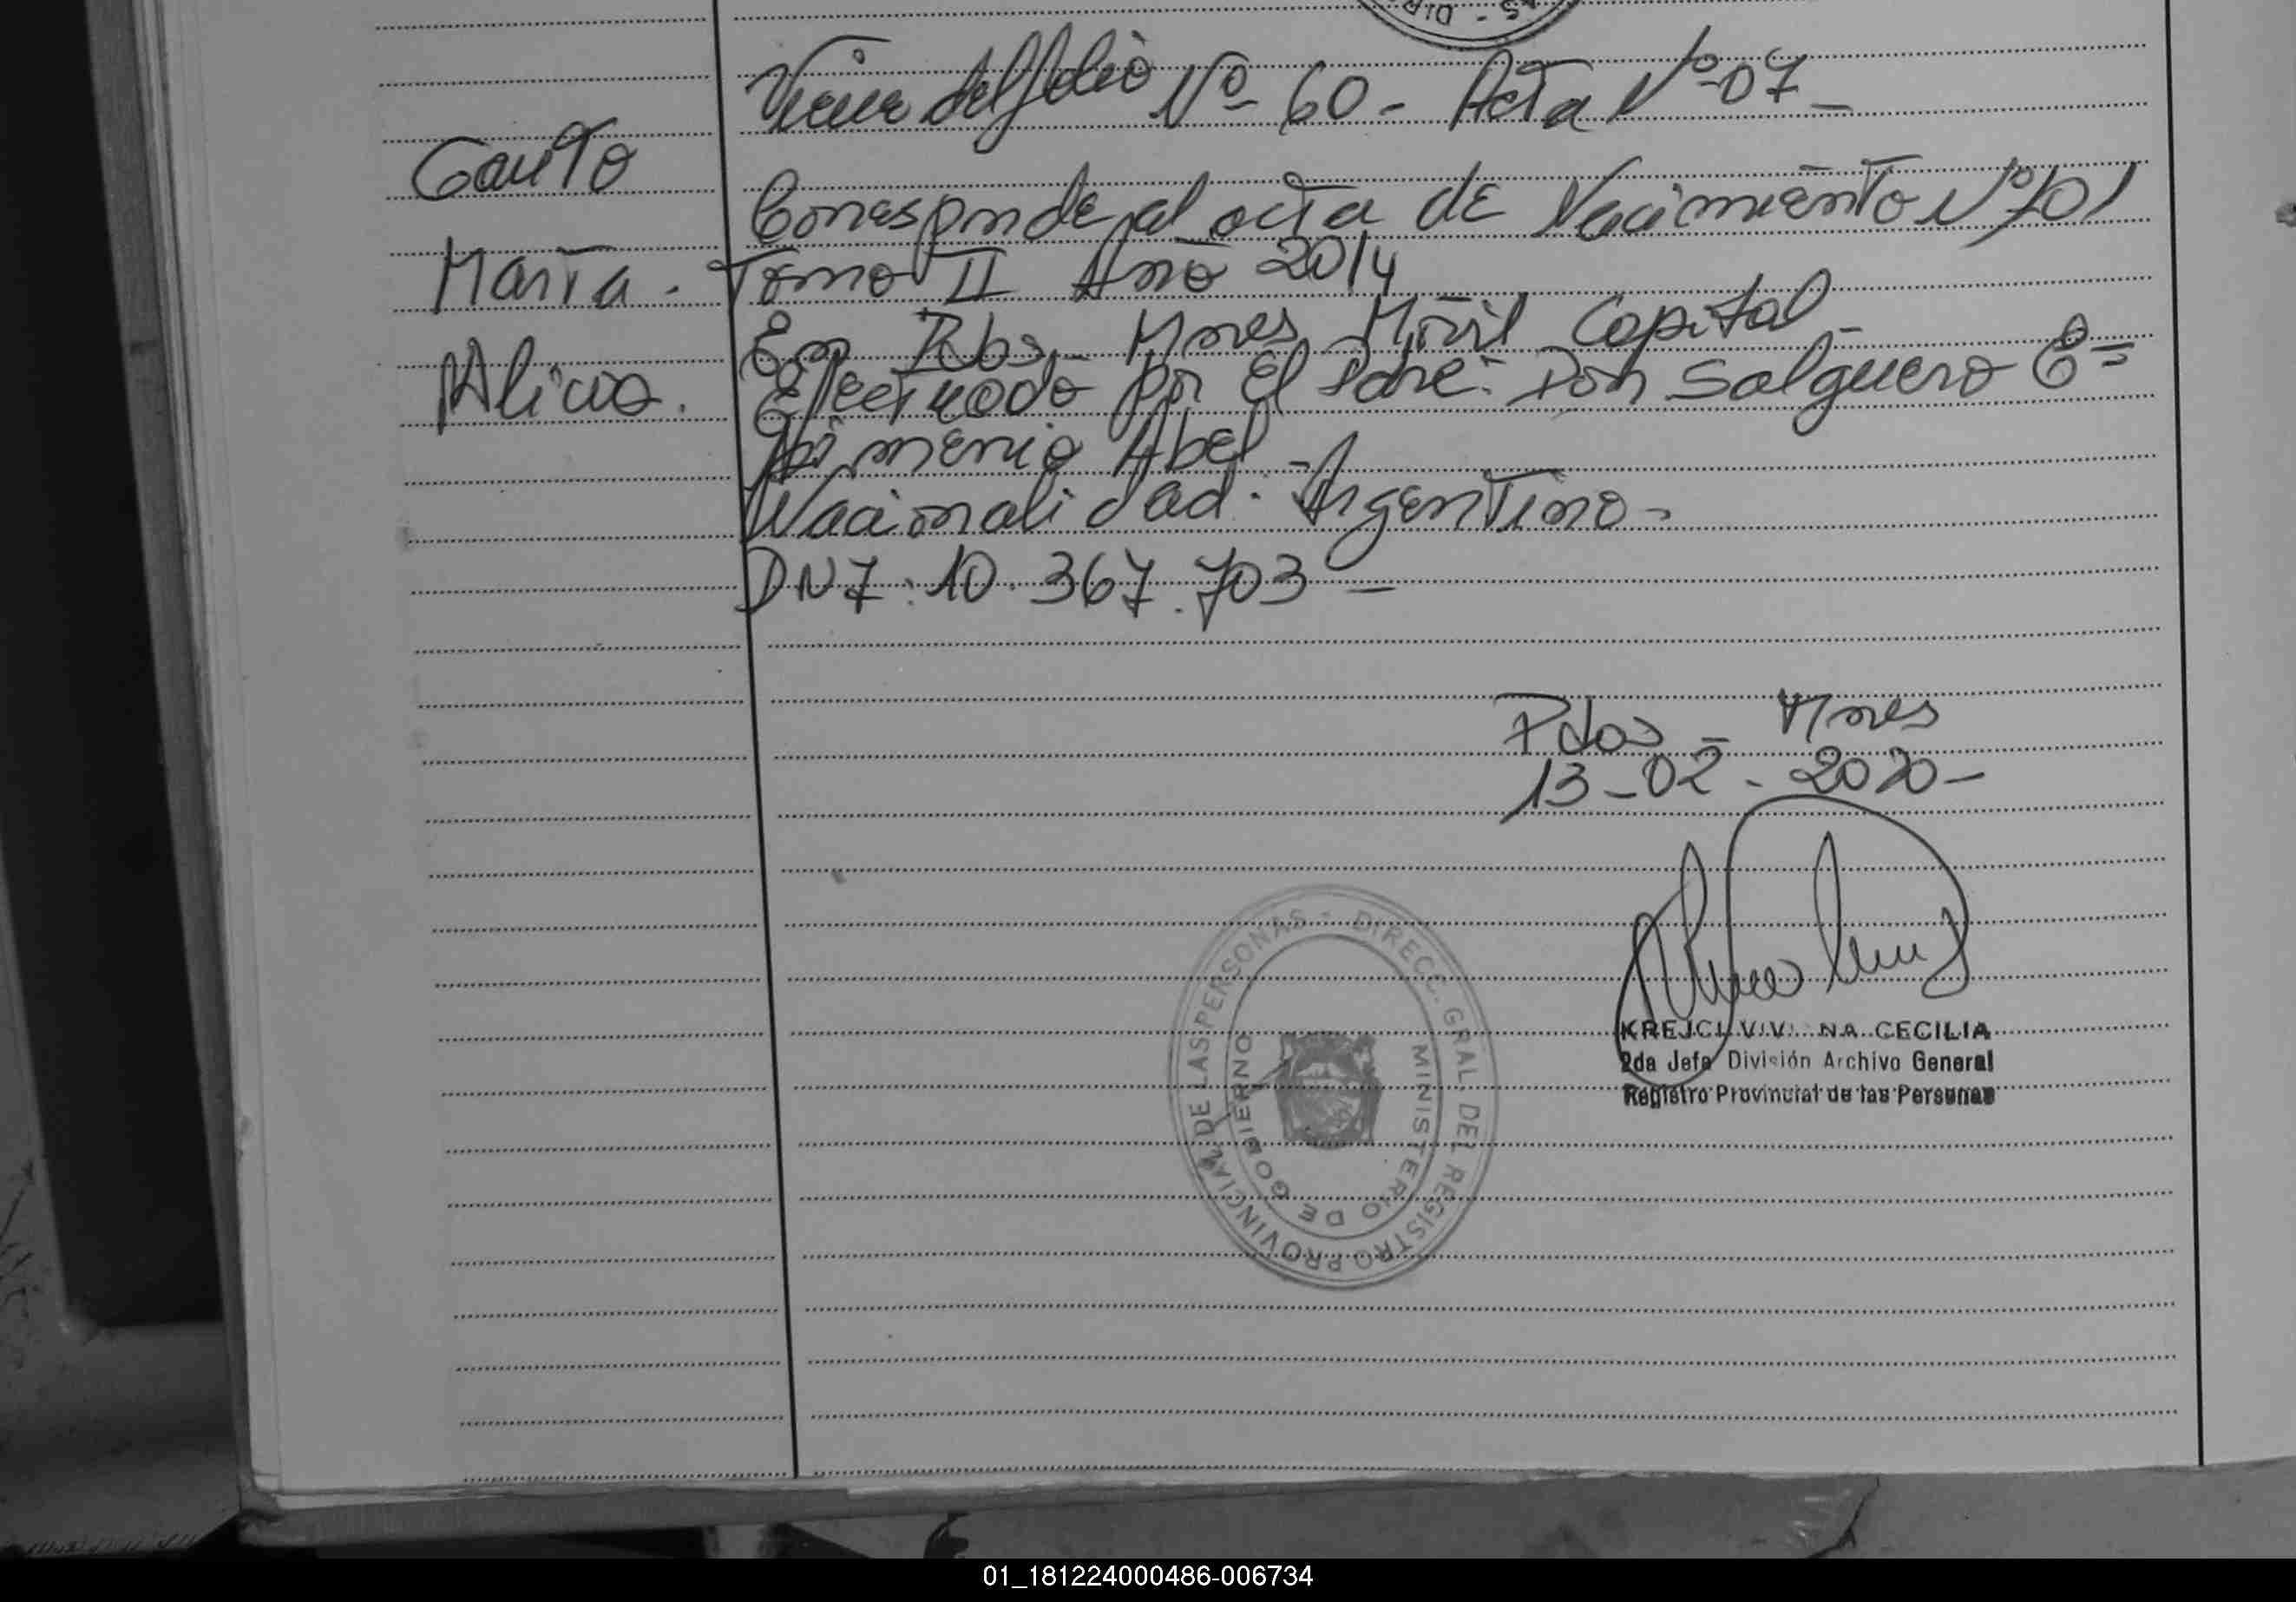 AS - DIR
Viene del folio Nº 60 - Acta Nº 07 -
Gauto
Corresponde al acta de Nacimiento Nº 701
María . Tomo II Año 2014
En Pdas - Mnes Móvil Capital -
Alicia . Efectuado por El Padre: Don Salguero
Abel -
Nacionalidad: Argentino -
DNI: 10.367.703 -
Pdas - Mnes
13-02-2020-
KREJCI VIVI NA CECILIA
2da Jefa División Archivo General
Registro Provincial de las Personas
DIRECC. GRAL DEL REGISTRO PROVINCIAL DE LAS PERSONAS -
MINISTERIO DE GOBIERNO
01_181224000486-006734